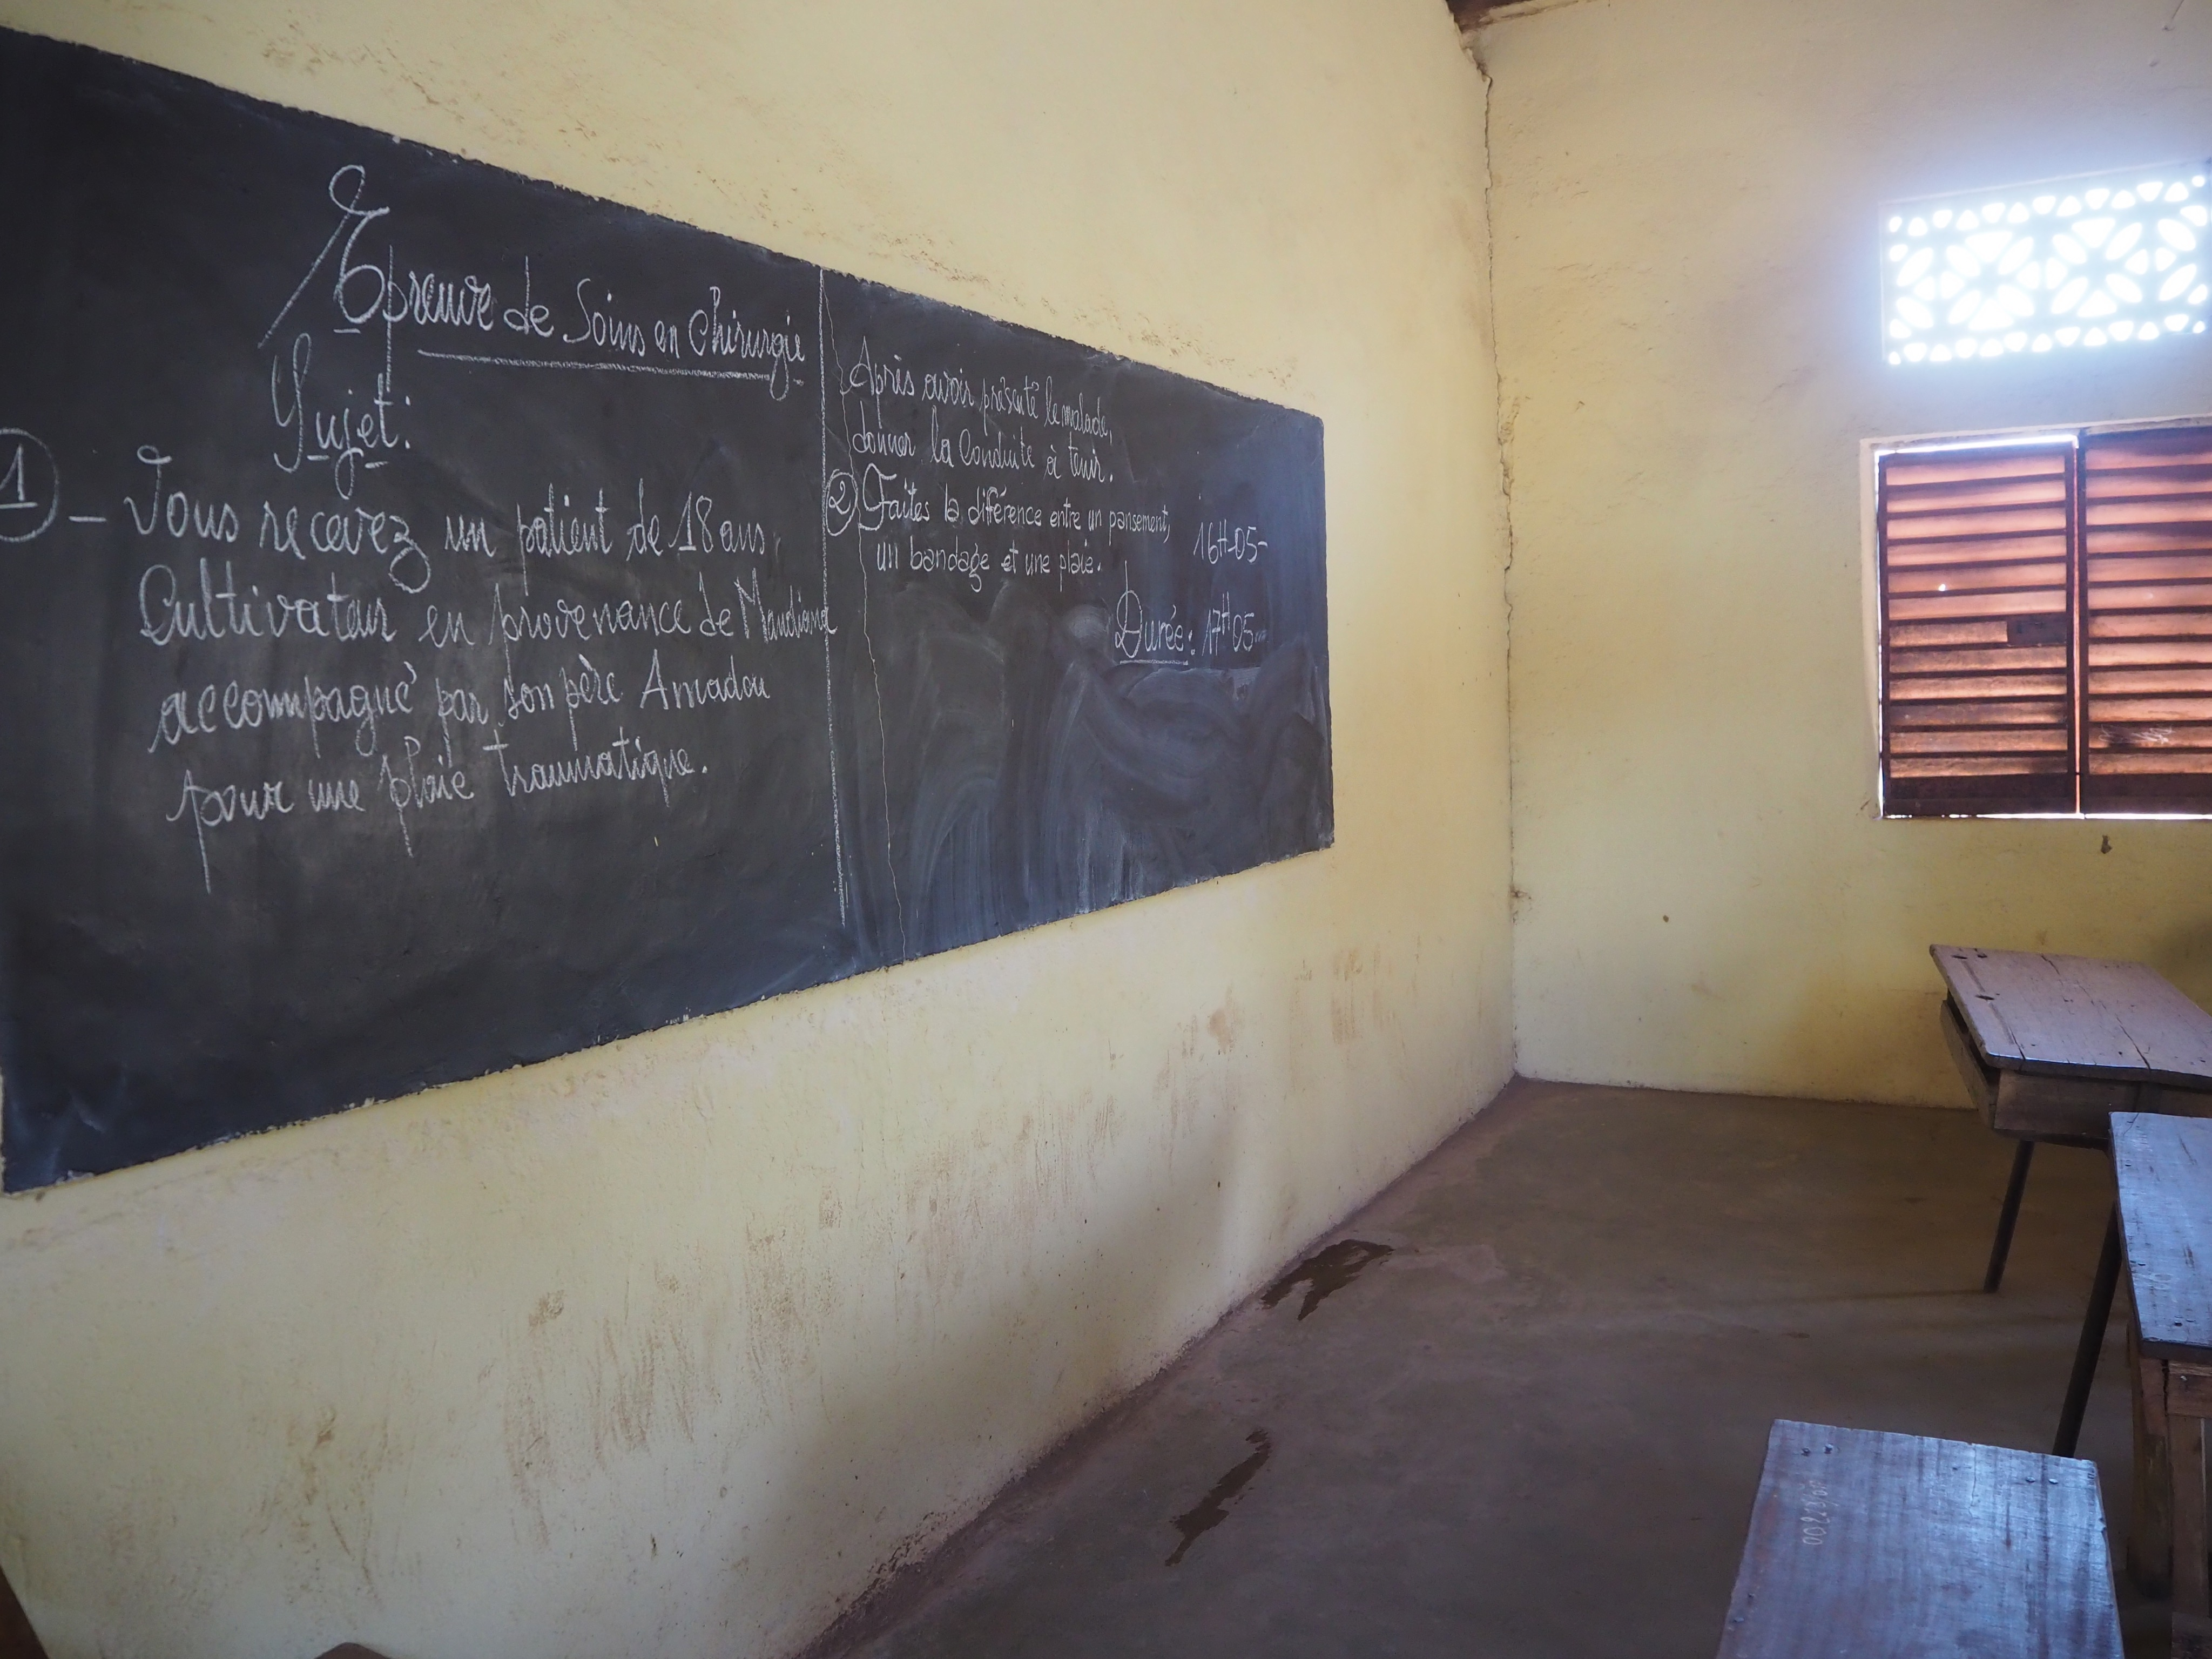 Epreuve de Soins en Chirurgie
Sujet:
1 - Vous recevez un patient de 18 ans
Cultivateur en provenance de Mandiana
accompagné par son père Amadou
pour une plaie traumatique.
Après avoir présenté le malade,
donner la Conduite à tenir.
2 Faites la différence entre un pansement,
un bandage et une plaie.
16H-05-
Durée: 17H05-
002200